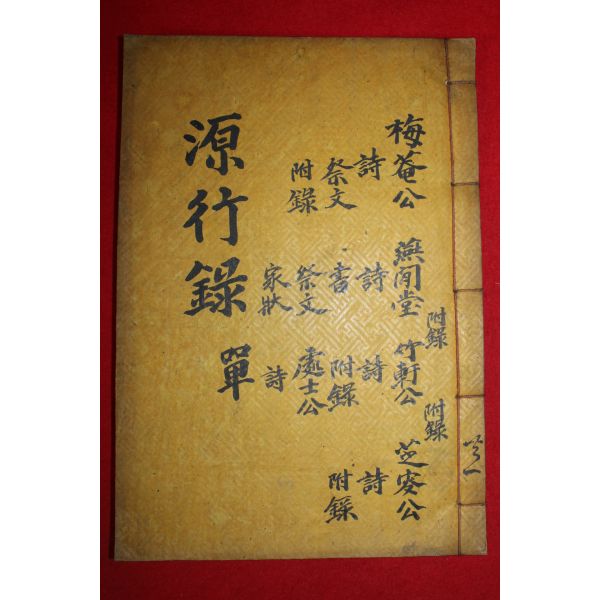 梅菴公
詩
祭文
附錄
燕閒堂
詩
書
祭文
家狀
附錄
竹軒公
詩
附錄
處士公
詩
附錄
芝公
詩
附錄
源行錄 單
共一